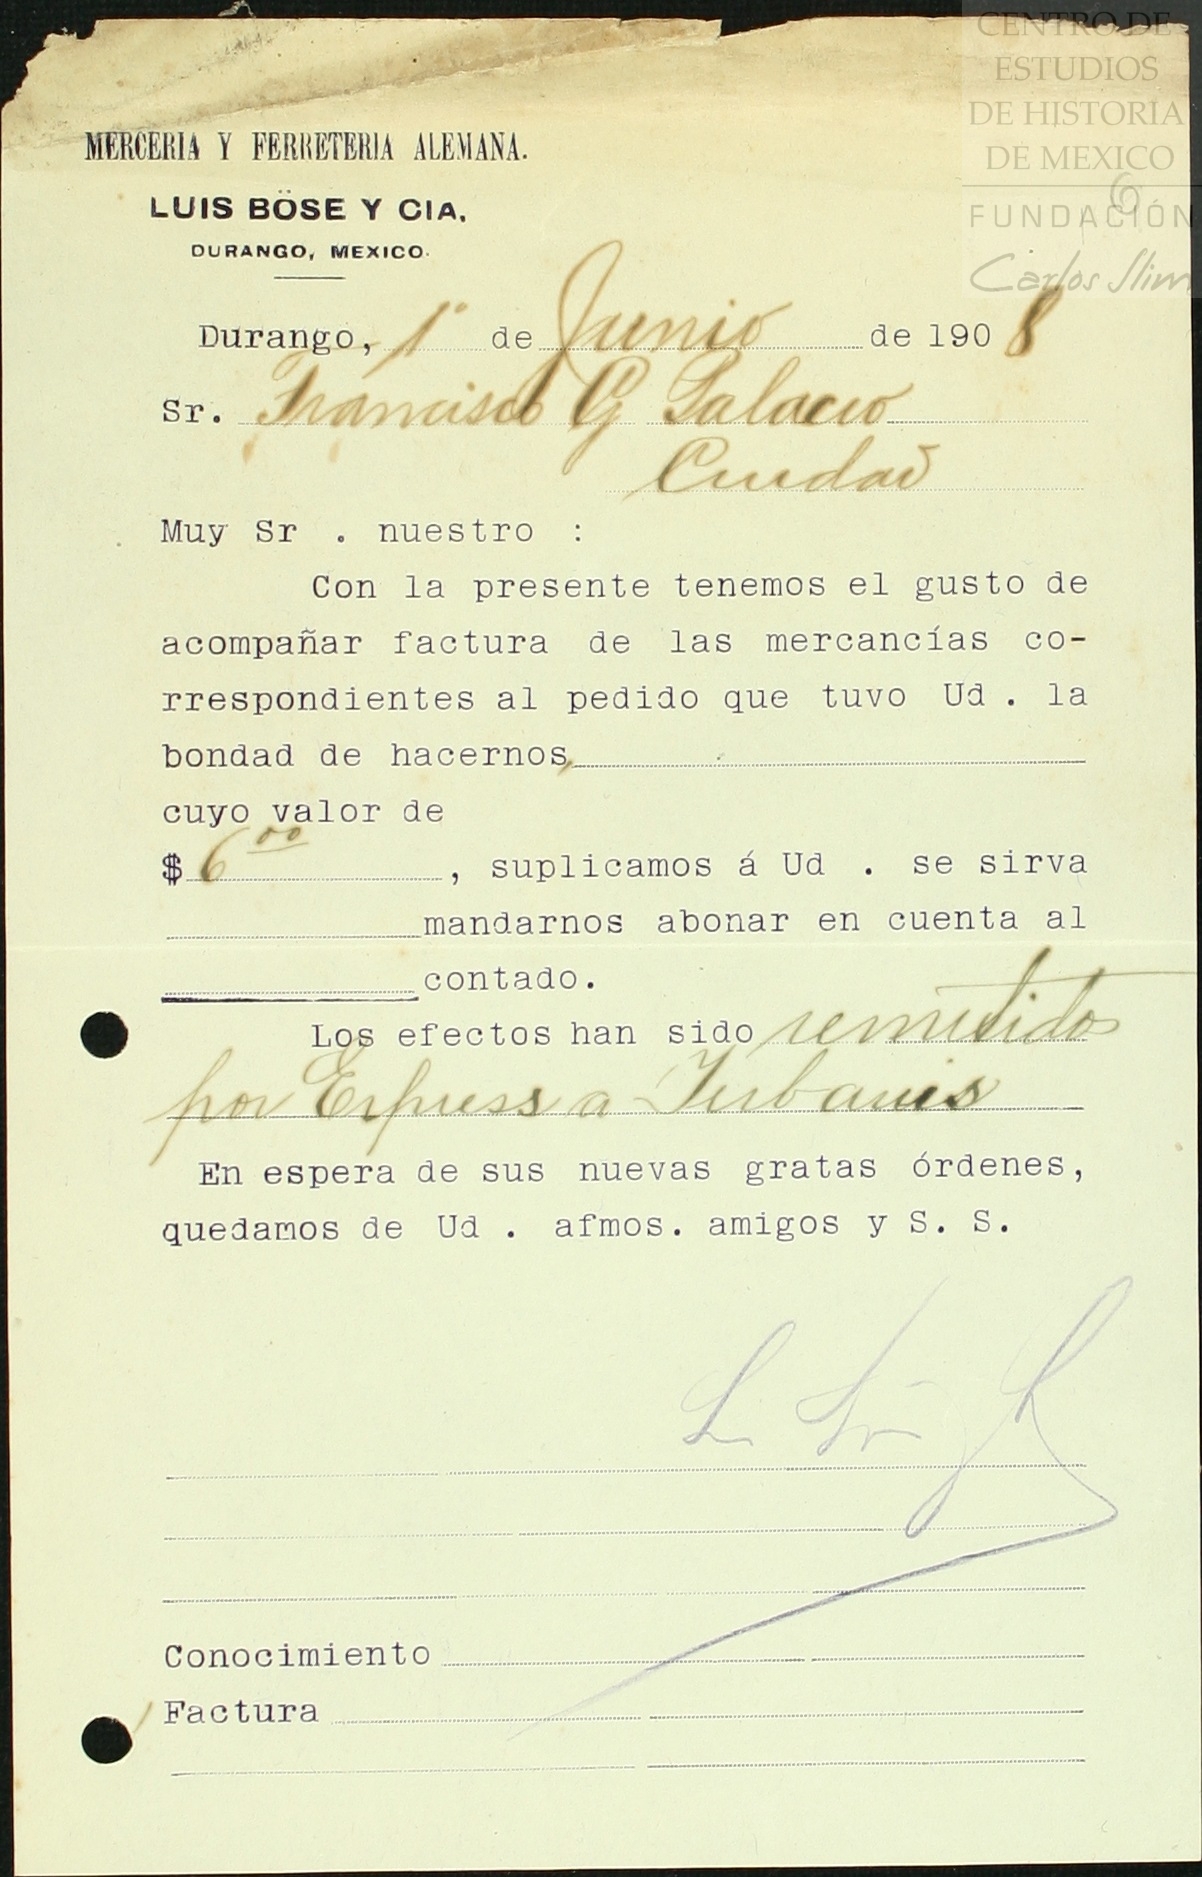 CENTRO DE
ESTUDIOS
DE HISTORIA
DE MEXICO
FUNDACIÓN
Carlos Slim
6
MERCERIA Y FERRETERIA ALEMANA.
LUIS BÖSE Y CIA.
DURANGO, MEXICO.
Durango, 1º de Junio de 1908
Sr. Francisco G Palacio
Ciudad
Muy Sr . nuestro :
Con la presente tenemos el gusto de
acompañar factura de las mercancías co-
rrespondientes al pedido que tuvo Ud . la
bondad de hacernos,
cuyo valor de
$ 6 00 , suplicamos á Ud . se sirva
mandarnos abonar en cuenta al
contado.
Los efectos han sido remitidos
por Express a
En espera de sus nuevas gratas órdenes,
quedamos de Ud . afmos. amigos y S. S.
Conocimiento
1 Factura